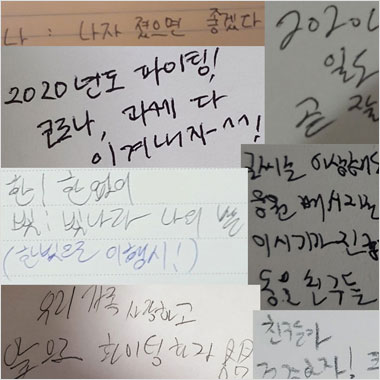 나 : 나자 졌으면 좋겠다
2020년도 파이팅!
코로나, 과제 다
이겨내자~^^!
2020
일도
곧
한! 한없이
빛: 빛나라 나의 별
(한빛으로 이행시!)
글씨는 이상해도
응원 메시지는
동은 친구들
우리 가족 사랑하고
앞으로 화이팅하자
친구들아